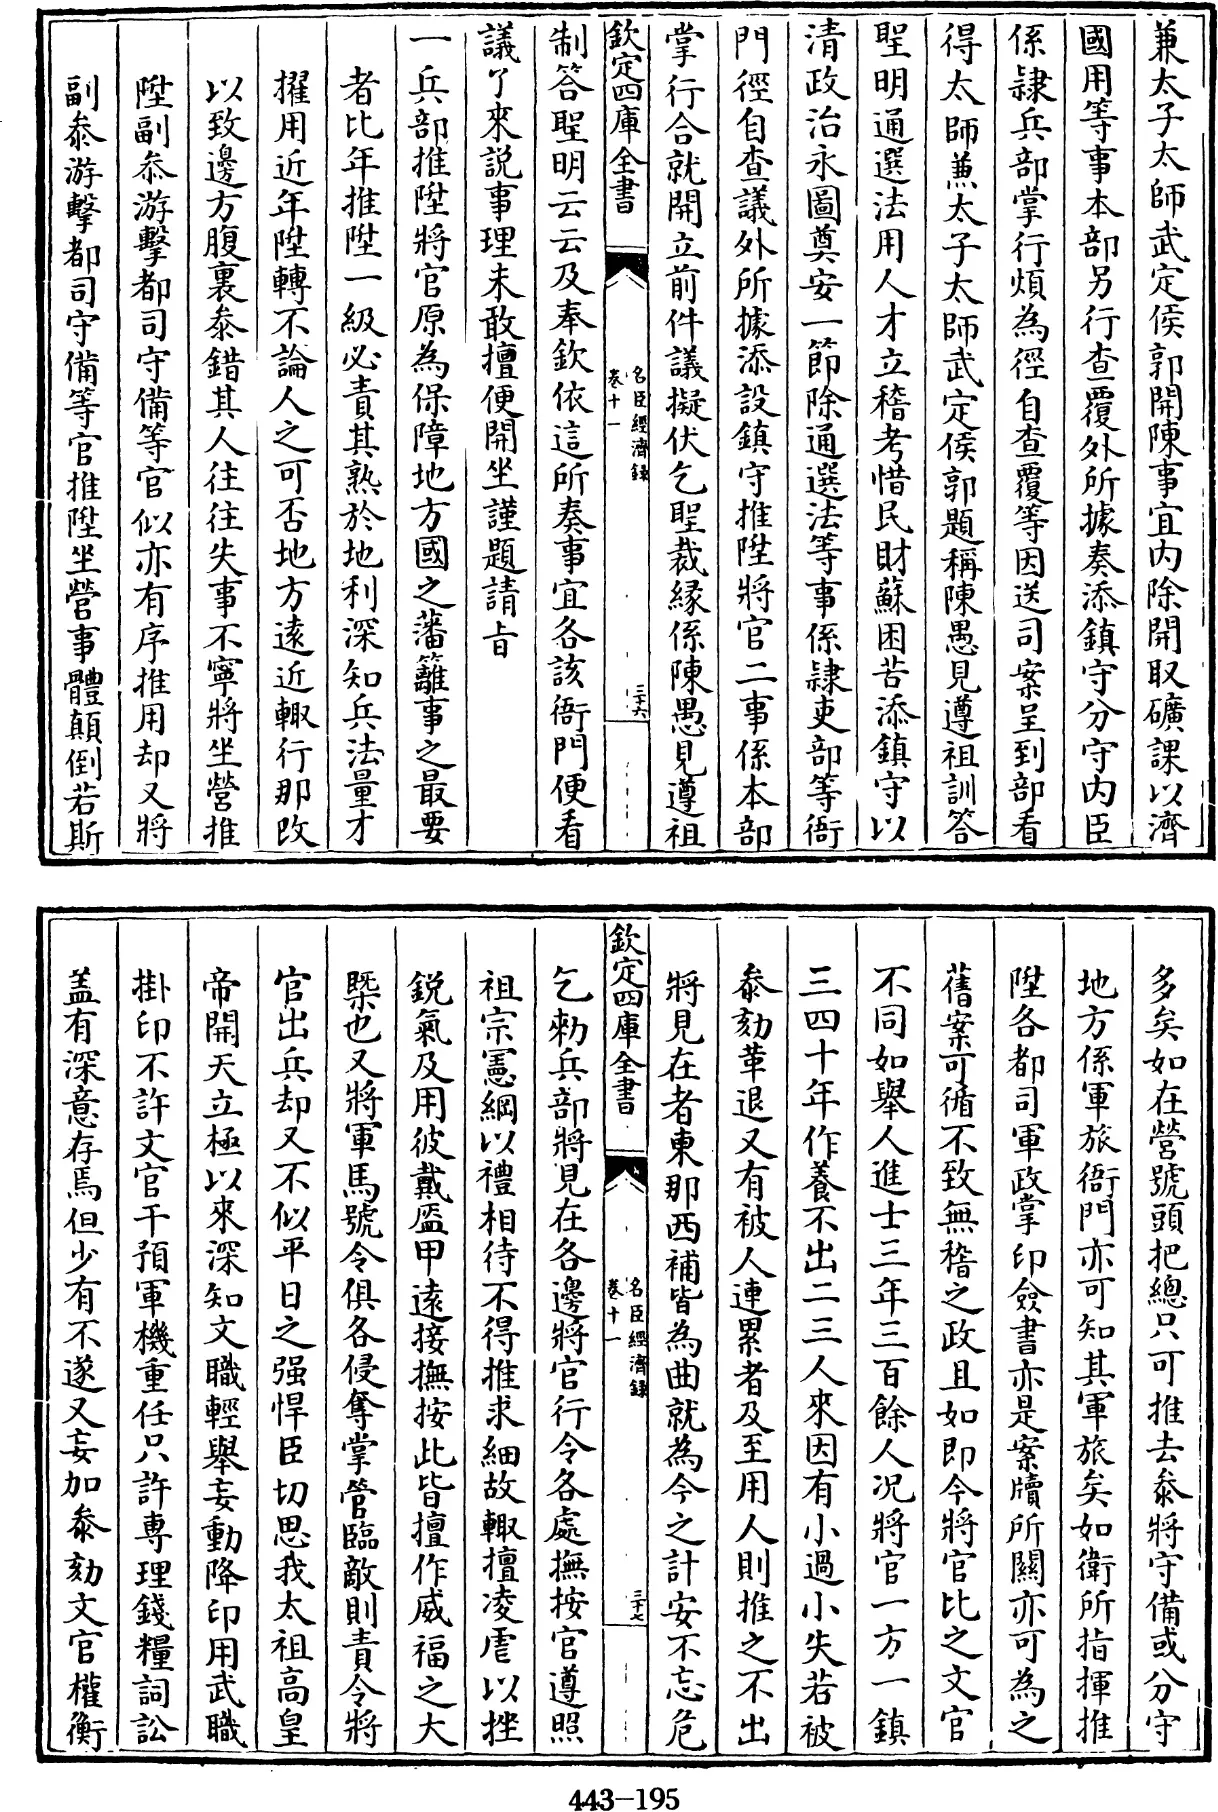 兼太子太師武定侯郭開陳事宜内除開取礦課以濟
國用等事本部另行查覆外所據奏添鎮守分守内臣
係隷兵部掌行煩為徑自查覆等因送司案呈到部看
得太師兼太子太師武定侯郭題稱陳愚見遵祖訓答
聖明通選法用人才立稽考惜民財蘇困苦添鎮守以
清政治永圖奠安一節除通選法等事係隷吏部等衙
門徑自查議外所據添設鎮守推陞將官二事係本部
掌行合就開立前件議擬伏乞聖裁緣係陳愚見遵祖
欽定四庫全書
名臣經濟録
卷十一
三十六
制答聖明云云及奉欽依這所奏事宜各該衙門便看
議了來説事理未敢擅便開坐謹題請㫖
一兵部推陞將官原為保障地方國之藩籬事之最要
者比年推陞一級必責其熟於地利深知兵法量才
擢用近年陞轉不論人之可否地方逺近輙行那改
以致邊方腹裏叅錯其人往往失事不寧將坐營推
陞副叅游擊都司守備等官似亦有序推用却又將
副叅游擊都司守備等官推陞坐營事體顛倒若斯
多矣如在營號頭把總只可推去叅將守備或分守
地方係軍旅衙門亦可知其軍旅矣如衛所指揮推
陞各都司軍政掌印僉書亦是案牘所關亦可為之
舊案可循不致無稽之政且如即今將官比之文官
不同如舉人進士三年三百餘人况將官一方一鎮
三四十年作養不出二三人來因有小過小失若被
叅劾革退又有被人連累者及至用人則推之不出
將見在者東那西補皆為曲就為今之計安不忘危
欽定四庫全書
名臣經濟録
卷十一
三十七
乞勅兵部將見在各邊將官行令各處撫按官遵照
祖宗憲綱以禮相待不得推求細故輙擅凌虐以挫
銳氣及用彼戴盔甲逺接撫按此皆擅作威福之大
槩也又將軍馬號令俱各侵奪掌管臨敵則責令將
官出兵却又不似平日之强悍臣切思我太祖高皇
帝開天立極以來深知文職輕舉妄動降印用武職
掛印不許文官干預軍機重任只許専理錢糧詞訟
盖有深意存焉但少有不遂又妄加叅劾文官權衡
443-195